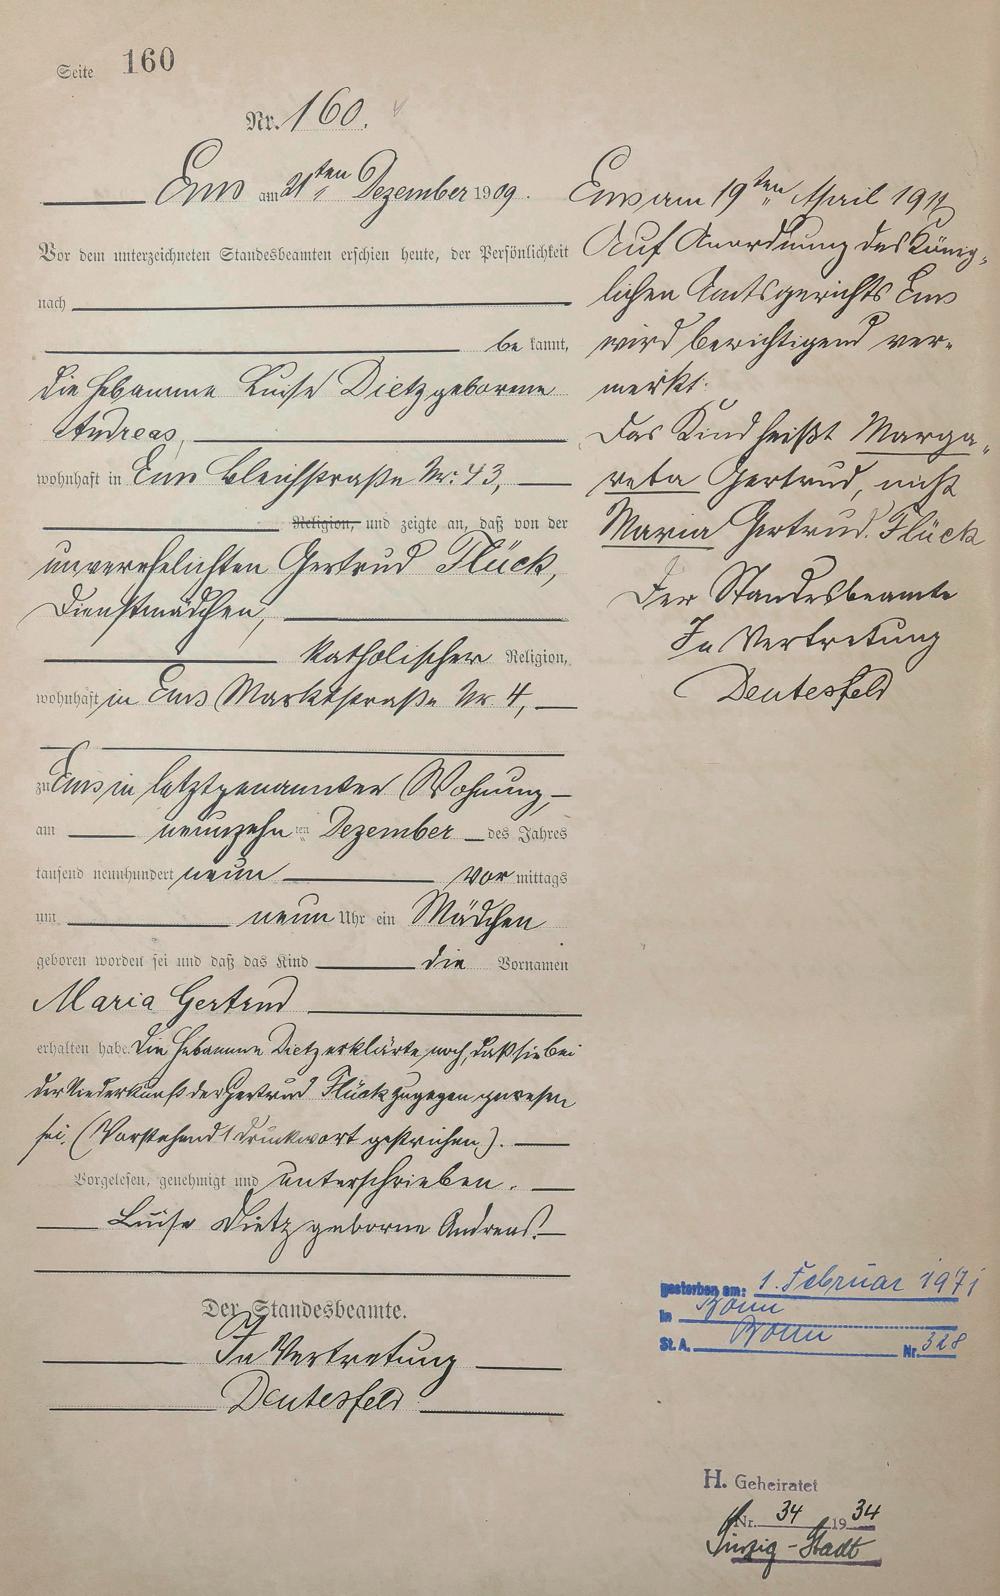 Seite 160
Nr. 160.
Ems am 21ten Dezember 1909.
Vor dem unterzeichneten Standesbeamten erschien heute, der Persönlichkeit
nach
bekannt,
die Hebamme Luise Dietz geborene
Andreas,
wohnhaft in Ems Bleichstraße Nr: 43,
Religion, und zeigte an, daß von der
unverehelichten Gertrud Flück,
Dienstmädchen,
katholischer Religion,
wohnhaft in Ems Marktstraße Nr. 4,
zu Ems in letztgenannter Wohnung,
am neunzehnten Dezember des Jahres
tausend neunhundert neun vormittags
um neun Uhr ein Mädchen
geboren worden sei und daß das Kind die Vornamen
Maria Gertrud
erhalten habe. Die Hebamme Dietz erklärte noch, daß sie bei
der Niederkunft der Gertrud Flück zugegen gewesen
sei. (Vorstehend 1 Druckwort gestrichen).
Vorgelesen, genehmigt und unterschrieben.
Luise Dietz geborne Andreas.
Der Standesbeamte.
In Vertretung
Deutesfeld
Ems am 19ten April
Auf Anordnung des König-
lichen Amtsgerichts Ems
wird berichtigend ver-
merkt:
Das Kind heißt Marga-
reta Gertrud, nicht
Maria Gertrud Flück
Der Standesbeamte
In Vertretung
Deutesfeld
gestorben am: 1. Februar 1971
in Bonn
St. A. Bonn Nr. 328
H. Geheiratet
Nr. 34 1934
Sinzig-Stadt